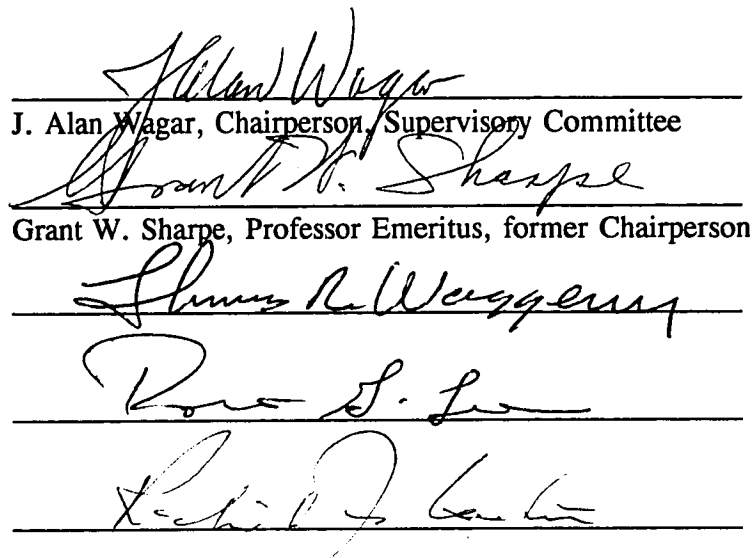 J Alan Wagar
J. Alan Wagar, Chairperson, Supervisory Committee
Grant W. Sharpe
Grant W. Sharpe, Professor Emeritus, former Chairperson
Thomas R. Waggener
G.
Richard